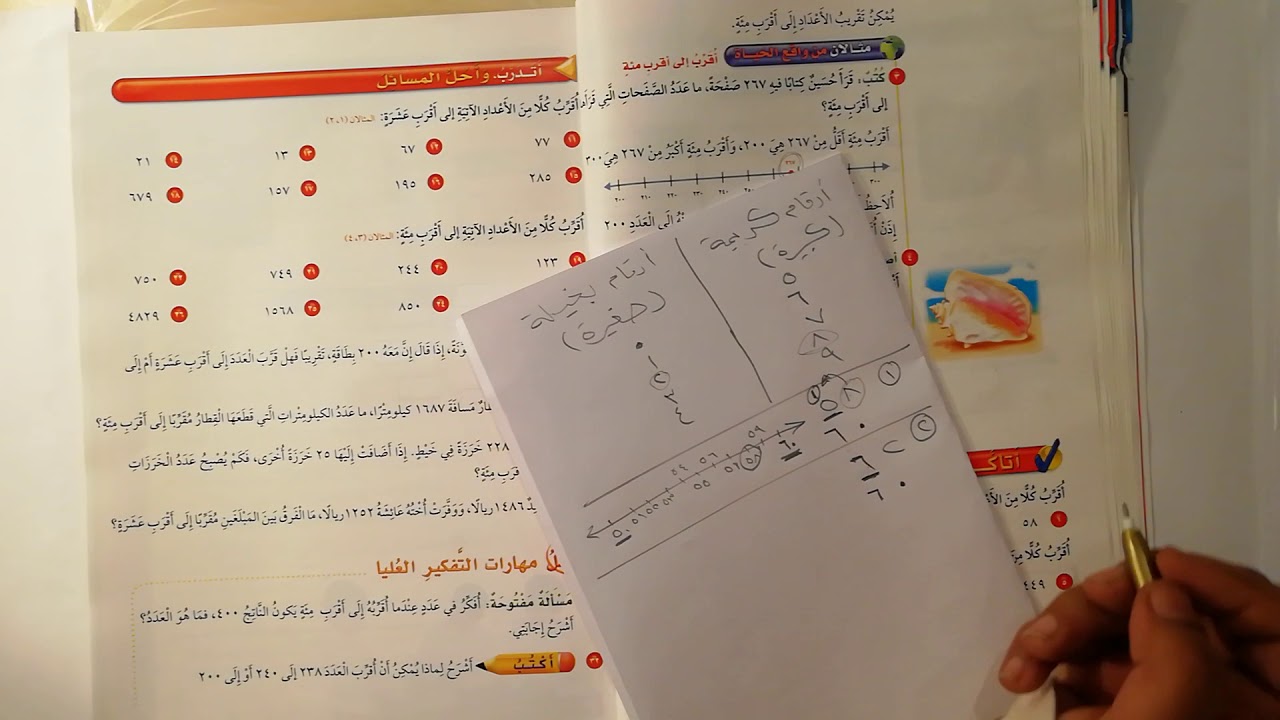 يُمْكِنُ تَقْرِيبُ الأَعْدَادِ إِلَى أَقْرَبِ مِئَةٍ.
مثالان من واقع الحياة
أُقَرِّبُ إلى أقرب مئةٍ
٣ كُتُبٌ: قَرَأَ حُسَيْنٌ كِتَابًا فِيهِ ٢٦٧ صَفْحَةً، ما عَدَدُ الصَّفَحَاتِ الَّتِي قَرَأَ
إلى أَقْرَبِ مِئَةٍ؟
أَقْرَبُ مِئَةٍ أَقَلُّ مِنْ ٢٦٧ هِيَ ٢٠٠، وَأَقْرَبُ مِئَةٍ أَكْبَرُ مِنْ ٢٦٧ هِيَ ٣٠٠
٢٦٧
٣٠٠
٢٠٠ ٢١٠ ٢٢٠
أُلَاحِظُ
إِلَى الْعَدَدِ ٢٠٠
إِذَنْ
٤
أُقَرِّبُ كُلًّا مِنَ
١ ٥٨
أُقَرِّبُ كُلًّا مِنَ
٥ ٤٤٩
أتدرَّبُ، وأحلُّ المسائل
أُقَرِّبُ كُلًّا مِنَ الأَعْدَادِ الآتِيَةِ إِلَى أَقْرَبِ عَشَرَةٍ: المثالان (١، ٢)
١١ ٧٧ ١٢ ٦٧ ١٣ ١٣ ١٤ ٢١
١٥ ٢٨٥ ١٦ ١٩٥ ١٧ ١٥٧ ١٨ ٦٧٩
أُقَرِّبُ كُلًّا مِنَ الأَعْدَادِ الآتِيَةِ إِلَى أَقْرَبِ مِئَةٍ: المثالان (٣، ٤)
١٩ ١٢٣ ٢٠ ٢٤٤ ٢١ ٧٤٩ ٢٢ ٧٥٠
٢٤ ٨٥٠ ٢٥ ١٥٦٨ ٢٦ ٤٨٢٩
إِذَا قَالَ إِنَّ مَعَهُ ٢٠٠ بِطَاقَةٍ، تَقْرِيبًا فَهَلْ قَرَّبَ العَدَدَ إِلَى أَقْرَبِ عَشَرَةٍ أَمْ إِلَى
مَسَافَةَ ١٦٨٧ كيلومِتْرًا، مَا عَدَدُ الكيلومِتْراتِ الَّتِي قَطَعَهَا القِطَارُ مُقَرَّبًا إِلَى أَقْرَبِ مِئَةٍ؟
٢٢٨ خَرَزَةً فِي خَيْطٍ. إِذَا أَضَافَتْ إِلَيْهَا ٢٥ خَرَزَةً أُخْرَى، فَكَمْ يُصْبِحُ عَدَدُ الْخَرَزَاتِ
مِئَةٍ؟
١٤٨٦ ريالًا، وَوَفَّرَتْ أُخْتُهُ عَائِشَةُ ١٢٥٢ ريالًا، مَا الْفَرْقُ بَيْنَ المَبْلَغَيْنِ مُقَرَّبًا إِلَى أَقْرَبِ عَشَرَةٍ؟
مهارات التَّفكيرِ العُليا
مَسْأَلَةٌ مَفْتُوحَةٌ: أُفَكِّرُ في عَدَدٍ عِنْدَما أُقَرِّبُهُ إِلَى أَقْرَبِ مِئَةٍ يَكونُ النَّاتِجُ ٤٠٠، فَمَا هُوَ الْعَدَدُ؟
أَشْرَحُ إِجَابَتِي.
٣٢ أَكْتُبُ أَشْرَحُ لِمَاذا يُمْكِنُ أَنْ أُقَرِّبَ الْعَدَدَ ٢٣٨ إِلَى ٢٤٠ أَوْ إِلَى ٢٠٠
أرقام كريمة
(كبيرة)
٥
٦
٧
٨
٩
أرقام بخيلة
(صغيرة)
٠
١
٢
٣
٤
٥٠ ٥١ ٥٢ ٥٣ ٥٤ ٥٥ ٥٦ ٥٧ ٥٨ ٥٩ ٦٠
١ ٥٨
١
٦٠
٢
٦٠